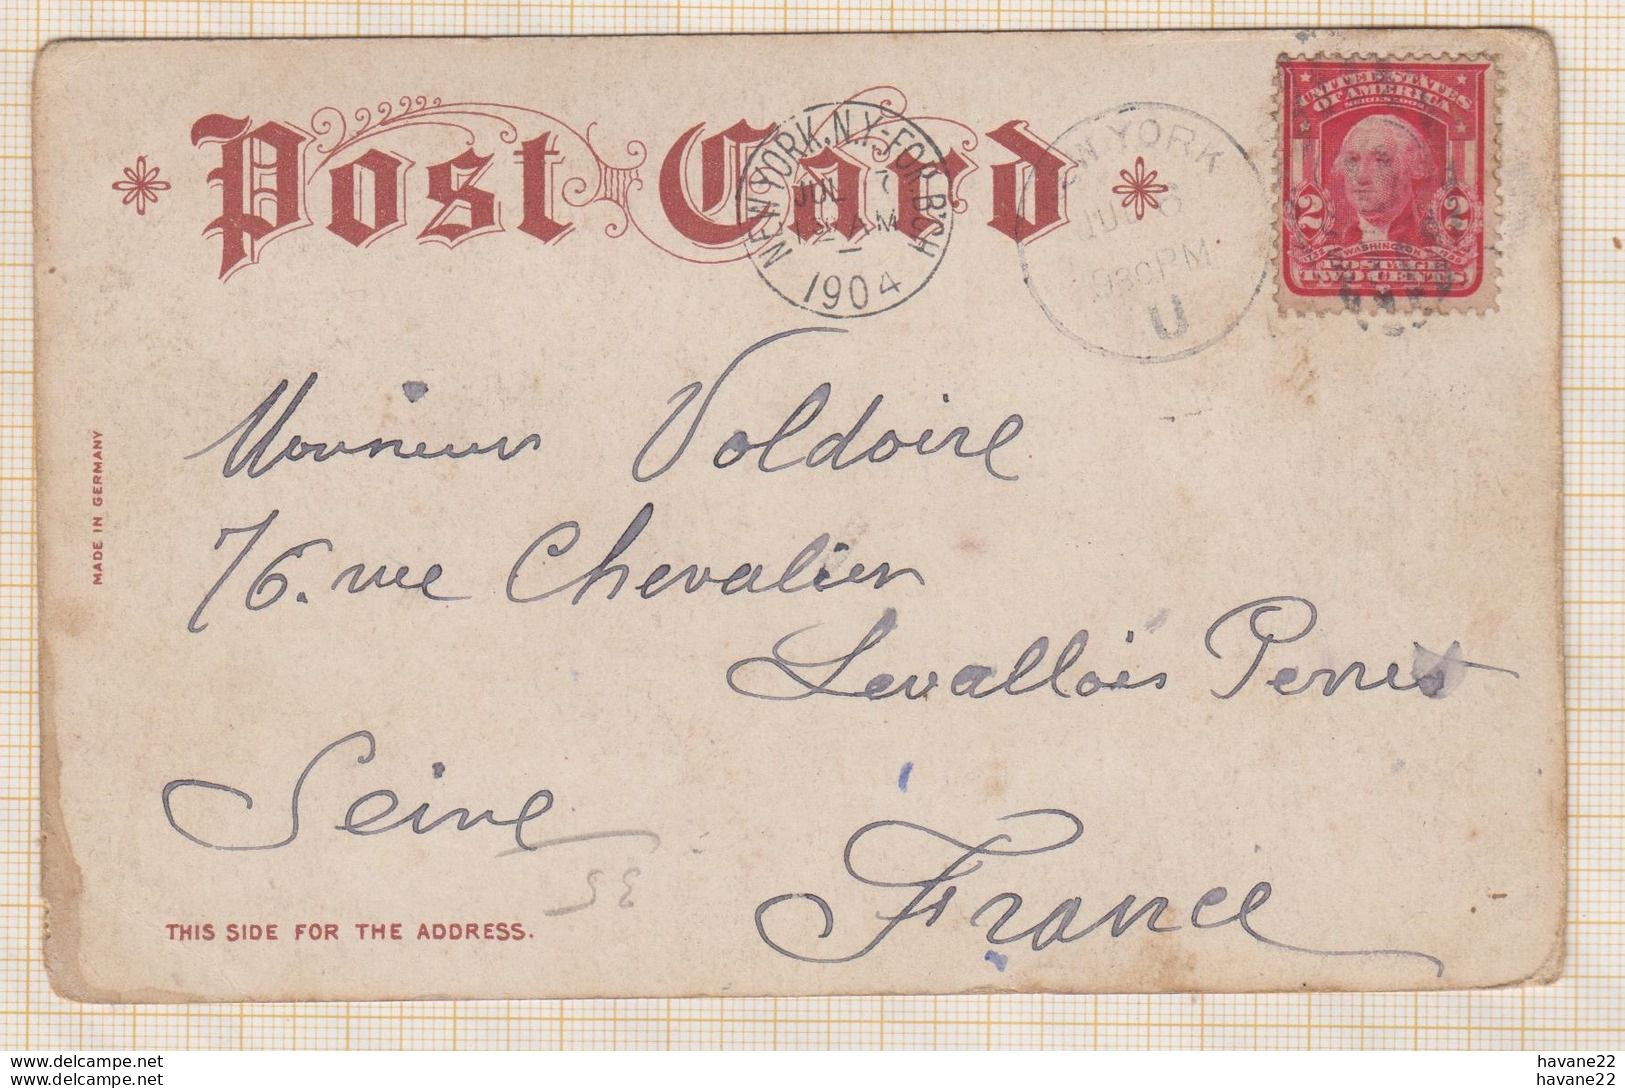 Post Card
NEW YORK, N.Y.-FOR. B'CH
JUL 7
12 AM
1904
NEW YORK
JUL 6
930PM
U
UNITED STATES
OF AMERICA
SERIES 1902
2 2
WASHINGTON
POSTAGE
TWO CENTS
Monsieur Voldoire
76. rue Chevalier
Levallois Perret
Seine
France
MADE IN GERMANY
THIS SIDE FOR THE ADDRESS.
www.delcampe.net havane22
www.delcampe.net havane22